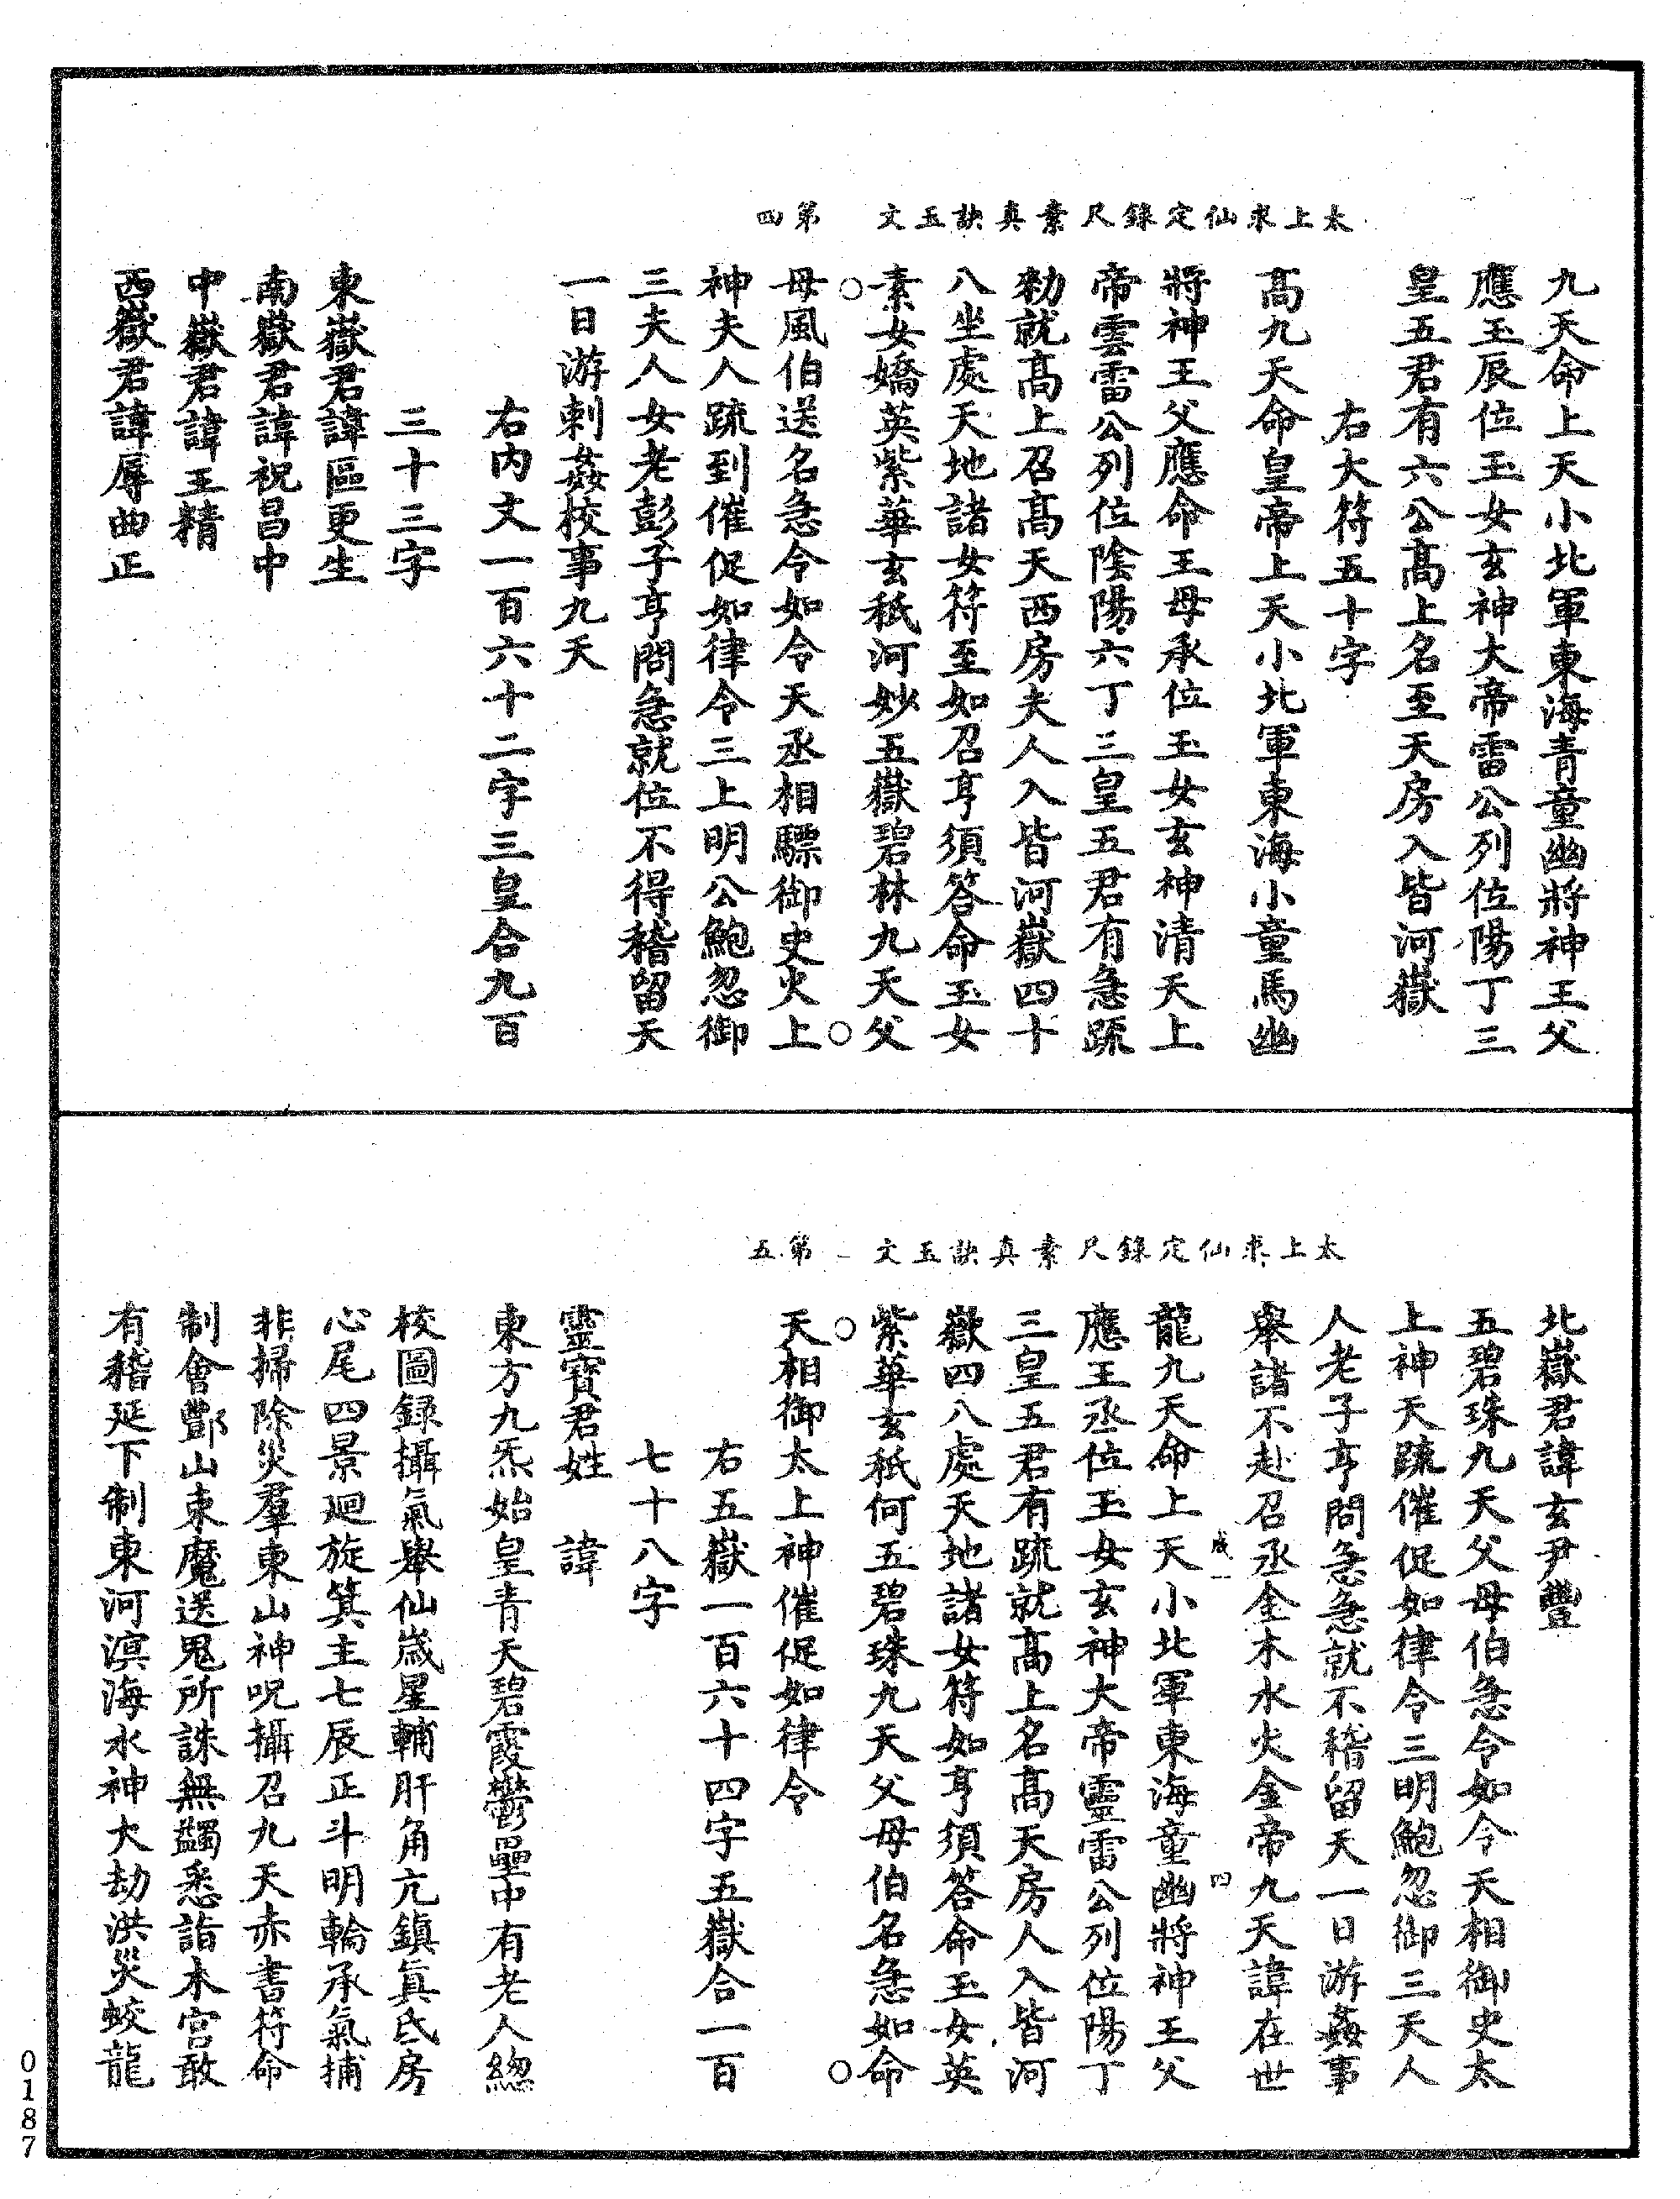 太上求仙定錄尺素真訣玉文　第四
九天命上天小北軍東海青童幽將神王父
應玉辰位玉女玄神大帝雷公列位陽丁三
皇五君有六公高上名至天房入皆河嶽
右大符五十字
高九天命皇帝上天小北軍東海小童馬幽
將神王父應命王母承位玉女玄神清天上
帝雲雷公列位陰陽六丁三皇五君有急疏
勑就高上召高天西房夫人入皆河嶽四十
八坐處天地諸女符至如召亨須答命玉女
素女嬌英紫華玄秖河妙五嶽碧林九天父
母風伯送名急令如令天丞相驃御史火上
神夫人疏到催促如律令三上明公鮑忽御
三夫人女老彭子亨問急就位不得稽留天
一日游刺姦校事九天
右內文一百六十二字三皇合九百
三十三字
東嶽君諱區更生
南嶽君諱祝昌中
中嶽君諱玉精
西嶽君諱辱曲正
太上求仙定錄尺素真訣玉文　第五
北嶽君諱玄尹豐
五碧珠九天父母伯急令如令天相御史太
上神天疏催促如律令三明鮑忽御三天人
人老子亨問急急就不稽留天一日游姦事
舉諸不赴召丞金木水火金帝九天諱在世
咸一　四
龍九天命上天小北軍東海童幽將神王父
應王丞位玉女玄神大帝靈雷公列位陽丁
三皇五君有疏就高上名高天房人入皆河
嶽四八處天地諸女符如亨須答命玉女英
紫華玄秖何五碧珠九天父母伯名急如命
天相御太上神催促如律令
右五嶽一百六十四字五嶽合一百
七十八字
靈寶君姓　諱
東方九炁始皇青天碧霞鬱壘中有老人緫
校圖録攝氣舉仙嵗星輔肝角亢鎮真氐房
心尾四景迴旋箕主七辰正斗明輪承氣捕
非掃除災羣東山神呪攝召九天赤書符命
制會酆山束魔送鬼所誅無蠲悉詣木宮敢
有稽延下制東河溟海水神大劫洪災蛟龍
0187